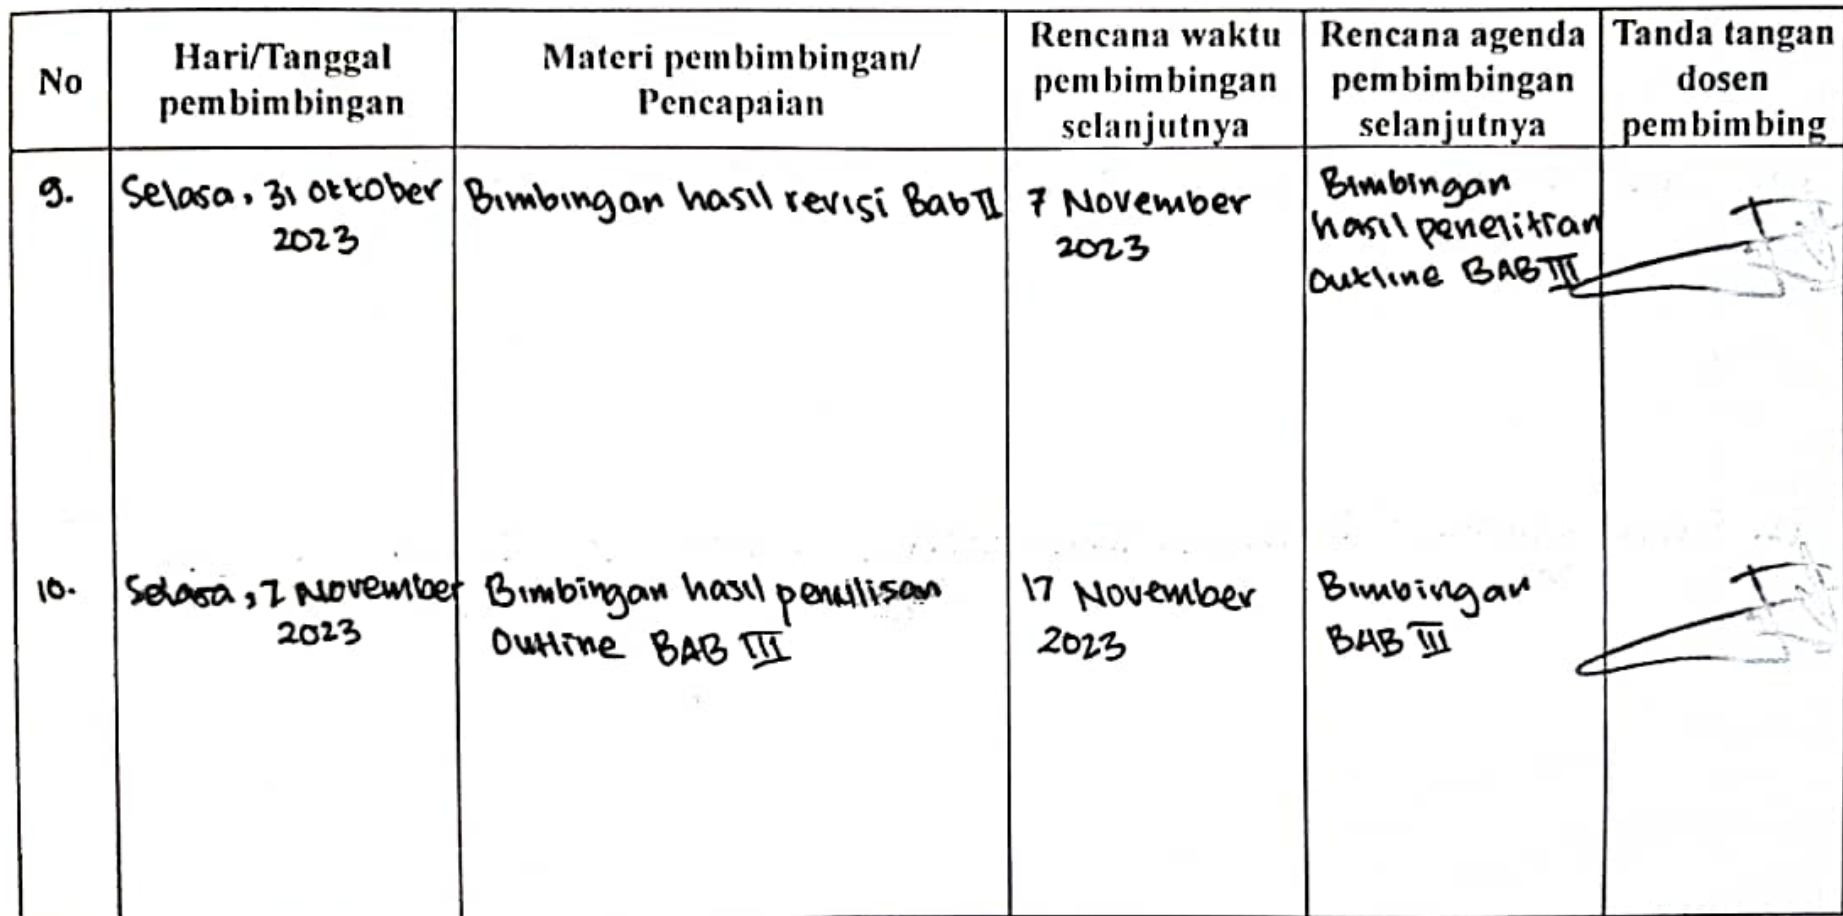 No
Hari/Tanggal
pembimbingan
Materi pembimbingan/
Pencapaian
Rencana waktu
pembimbingan
selanjutnya
Rencana agenda
pembimbingan
selanjutnya
Tanda tangan
dosen
pembimbing
9.
Selasa, 31 oktober
2023
Bimbingan hasil revisi Bab II
7 November
2023
Bimbingan
hasil penelitian
outline BAB III
10.
Selasa, 7 November
2023
Bimbingan hasil penulisan
Outline BAB III
17 November
2023
Bimbingan
BAB III